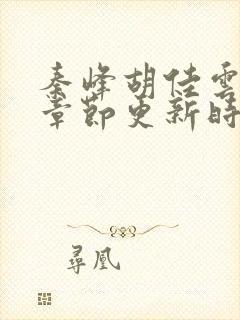 秦峰胡佳雲
章節更新時
尋凰